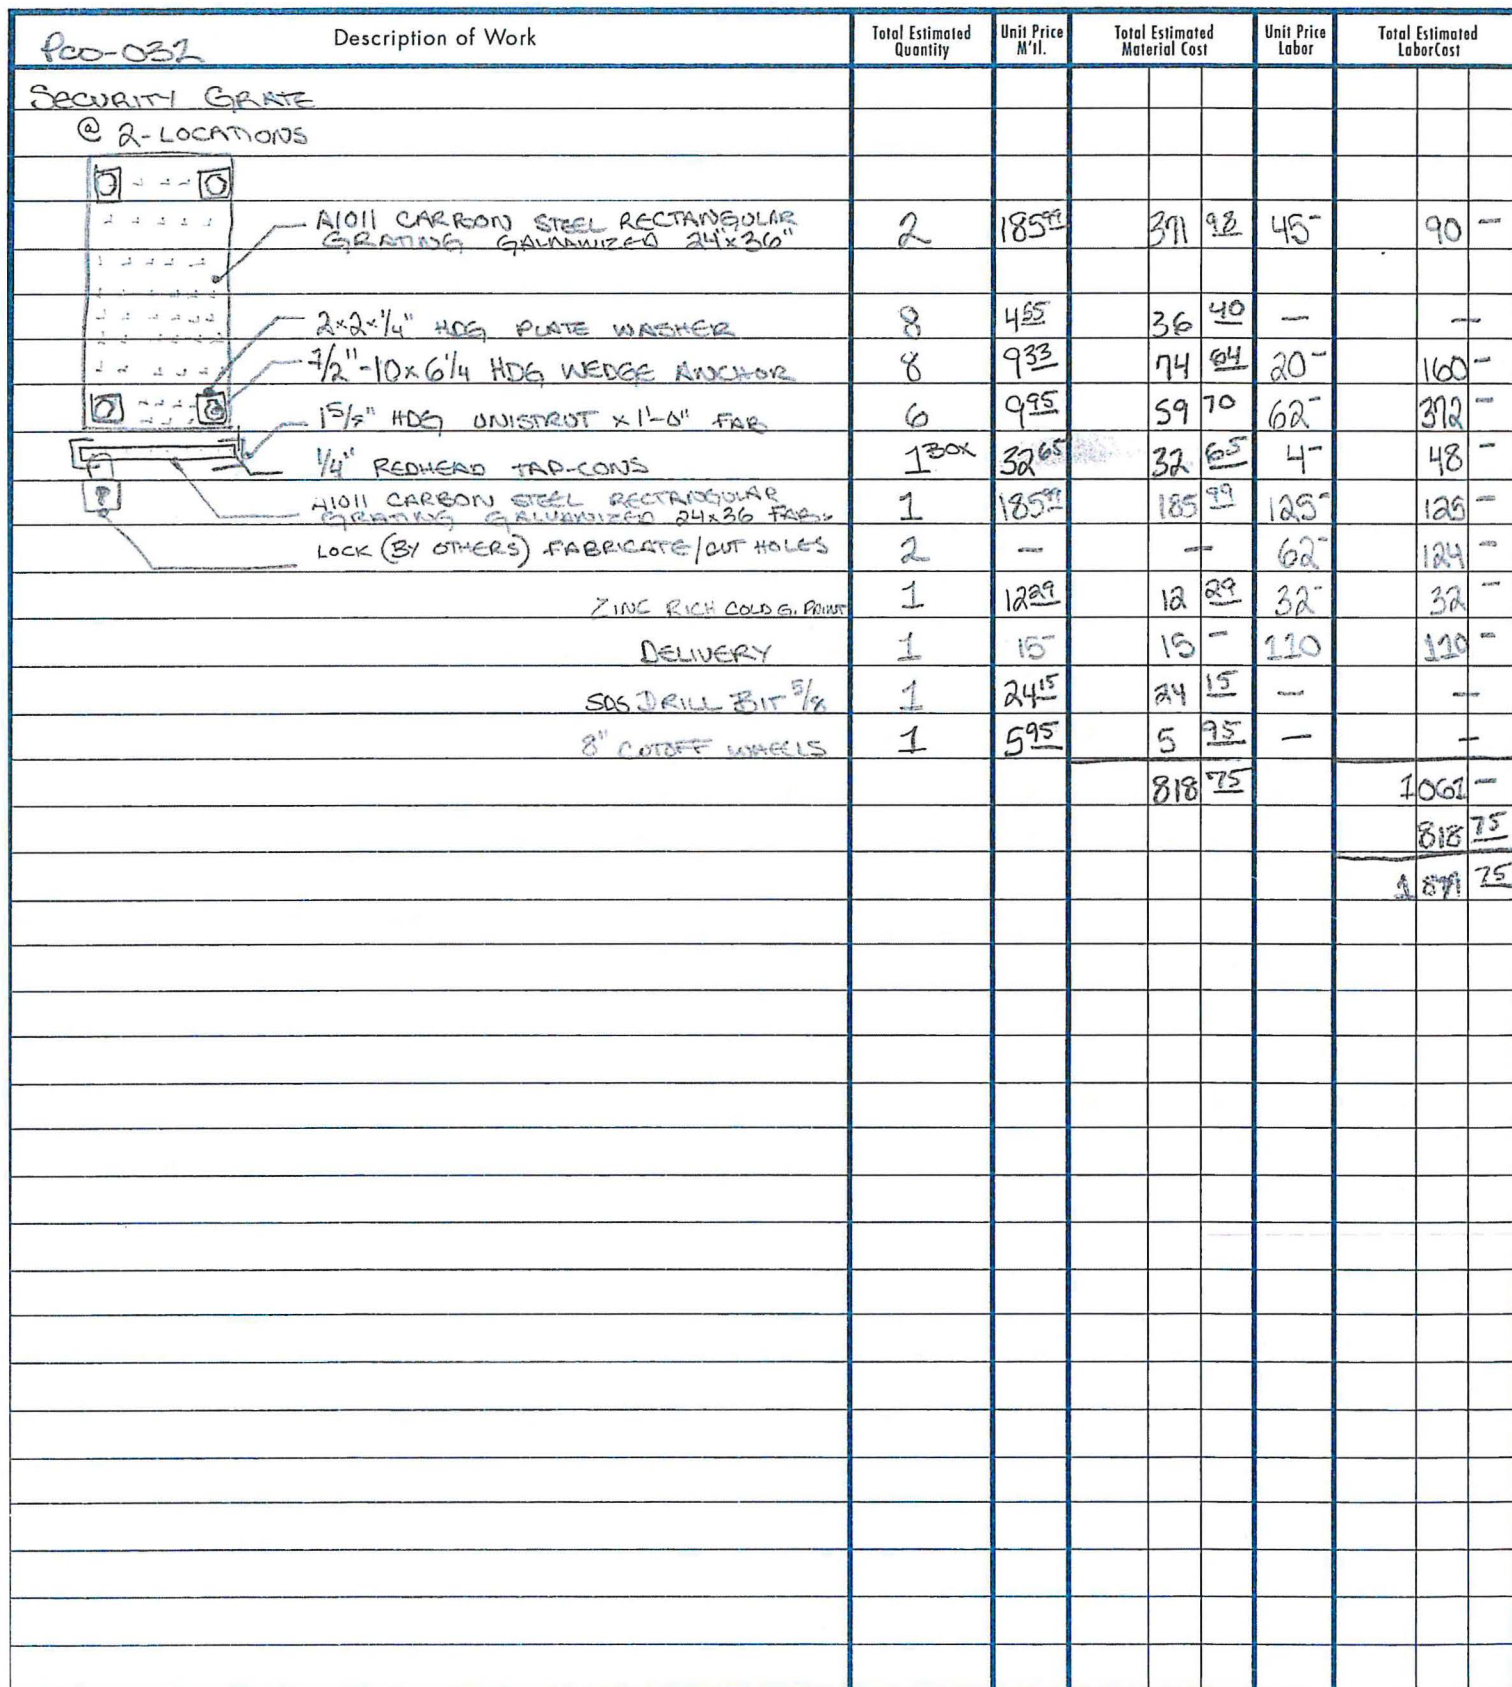 PCO-032 Description of Work Total Estimated Quantity Unit Price M'tl. Total Estimated Material Cost Unit Price Labor Total Estimated LaborCost
SECURITY GRATE
@ 2-LOCATIONS
A1011 CARBON STEEL RECTANGULAR
GRATING GALVANIZED 24"x36" 2 185 99 371 98 45- 90 -
2x2x1/4" HDG PLATE WASHER 8 4 55 36 40 - -
1/2"-10x6 1/4 HDG WEDGE ANCHOR 8 9 33 74 64 20- 160 -
1 5/8" HDG UNISTRUT x 1'-0" FAB 6 9 95 59 70 62- 372 -
1/4" REDHEAD TAP-CONS 1 BOX 32 65 32 65 4- 48 -
A1011 CARBON STEEL RECTANGULAR
GRATING GALVANIZED 24x36 FAB. 1 185 99 185 99 125- 125 -
LOCK (BY OTHERS) FABRICATE/CUT HOLES 2 - - 62- 124 -
ZINC RICH COLD G. PAINT 1 12 29 12 29 32- 32 -
DELIVERY 1 15- 15 - 110 110 -
SDS DRILL BIT 5/8 1 24 15 24 15 - -
8" CUTOFF WHEELS 1 5 95 5 95 - -
818 75 1061 -
818 75
1 879 75